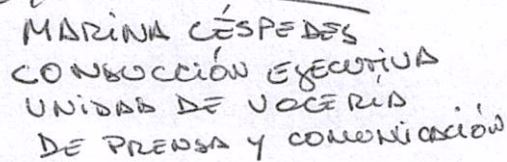 MARINA CÉSPEDES
CONDUCCIÓN EJECUTIVA
UNIDAD DE VOCERÍA
DE PRENSA Y COMUNICACIÓN